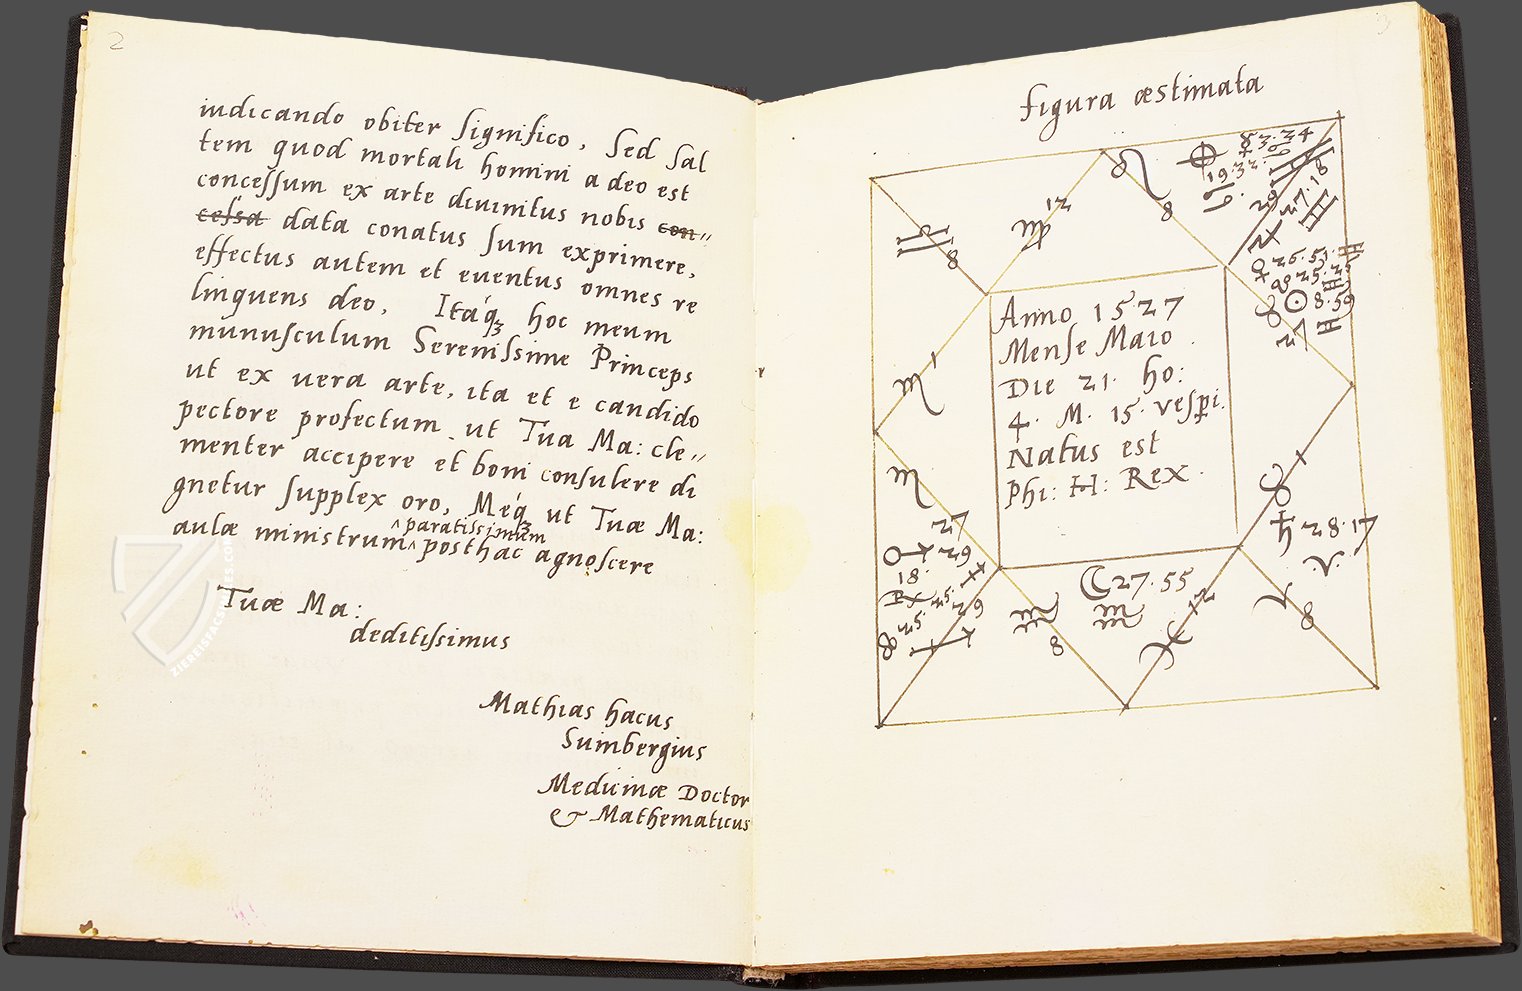 2
iudicando obiter significo, Sed Sal
tem quod mortali homini a deo est
concessum ex arte diuinitus nobis con〃
cessa data conatus sum exprimere,
effectus autem et euentus omnes re
linquens deo, Itáq₃ hoc meum
munusculum Serenissime Princeps
ut ex uera arte, ita et e candido
pectore profectum ut Tua Ma: cle〃
menter accipere et boni consulere di
gnetur supplex oro, Meq́₃ ut Tuæ Ma:
aulæ ministrum ^paratissimum^ posthac agnoscere
Tuæ Ma:
deditissimus
Mathias hacus
Sumbergius
Medicinæ Doctor
& Mathematicus
3
figura æstimata
♌ 8
⊕ 19.32 ♋
☿ 3.24 ♋
♊ 29
♃ 27.18 ♊
♊ 8
♍ 12
♀ 26.51. ♊
☋ 25.25 ♊
☉ 8.59 ♊
♉ 7
♏ 1
Anno 1527
Mense Maio
Die 21. ho:
4. M. 15. vespi.
Natus est
Phi: H: Rex.
♏ 27
♂ 29
18.
Rx 25. 26
☊ 25.
♉ 1
♄ 28.17
♈
♈ 8
☾ 27.55
♒
♒ 8
♓
ZIEREISFACSIMILES.COM